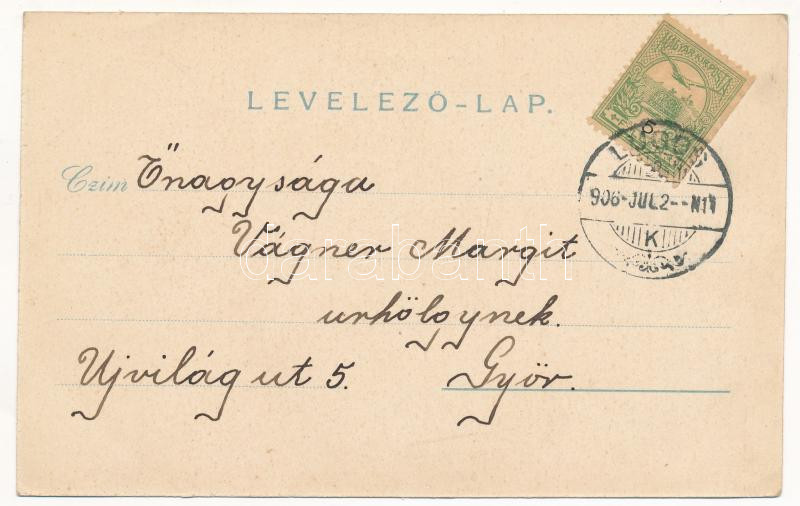 LEVELEZŐ-LAP.
MAGYAR KIR. POSTA
906-JUL.2--N11
K
Czim Őnagysága
Vágner Margit
urhölgynek.
Ujvilág ut 5. Győr.
darabanth